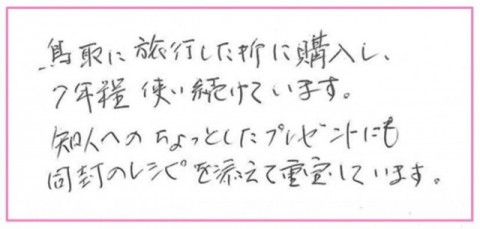 鳥取に旅行した折に購入し、
7年程使い続けています。
知人へのちょっとしたプレゼントにも
同封のレシピを添えて重宝しています。